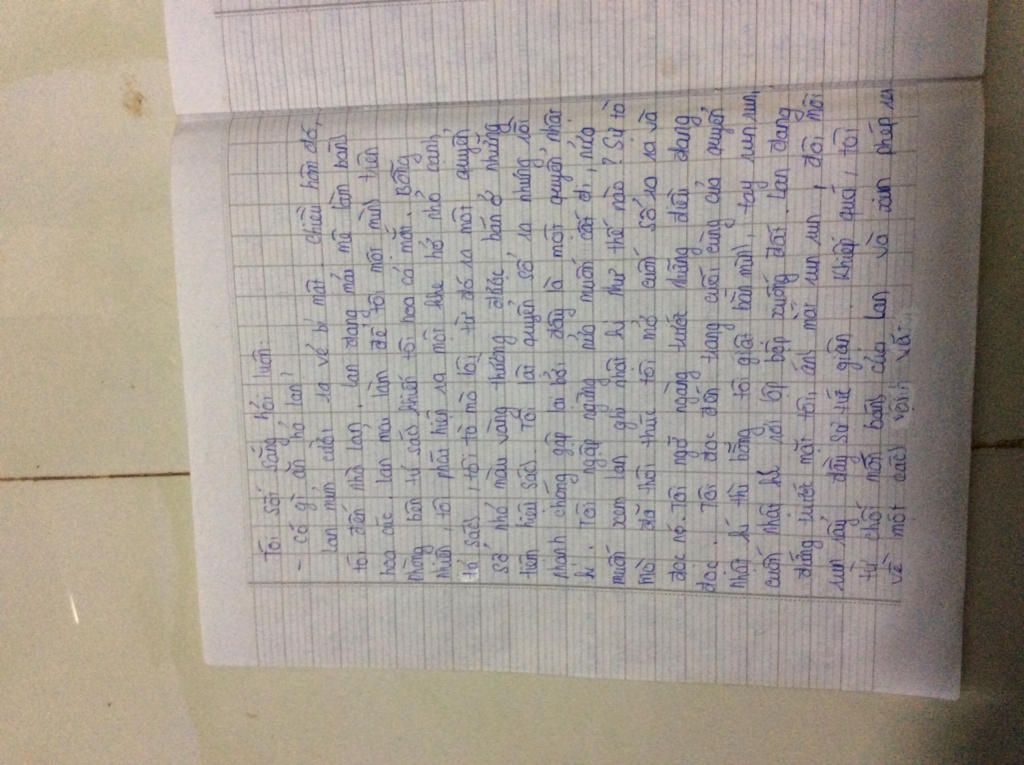 Tôi sốt sắng hỏi luôn:
- Có gì ăn hả Lan?
Lan mỉm cười ra vẻ bí mật. Chiều hôm đó,
tôi đến nhà Lan. Lan đang mải mê làm bánh
hoa cúc. Lan mải làm để tôi một mình trên
phòng bên tủ sách khiến tôi hoa cả mắt. Bỗng
nhiên, tôi phát hiện ra một khe hở nhỏ cạnh
tủ sách, tôi tò mò lôi từ đó ra một quyển
sổ nhỏ màu vàng thường được bán ở những
tiệm hiệu sách. Tôi lật quyển sổ ra nhưng rồi
nhanh chóng gập lại bởi đây là một quyển nhật
kí. Tôi ngập ngừng nửa muốn cất đi, nửa
muốn xem Lan ghi nhật kí như thế nào? Sự tò
mò đã thôi thúc tôi mở cuốn sổ ra và
đọc nó. Tôi ngỡ ngàng trước những điều đang
đọc. Tôi đọc đến trang cuối cùng của quyển
nhật kí thì bỗng tôi giật bắn mình, tay run run,
cuốn nhật kí rơi lộp bộp xuống đất. Lan đang
đứng trước mặt tôi, ánh mắt run run, đôi môi
run rẩy đầy sự tức giận. Khiếp quá, tôi
từ chối món bánh của Lan và xin phép ra
về một cách vội vã.